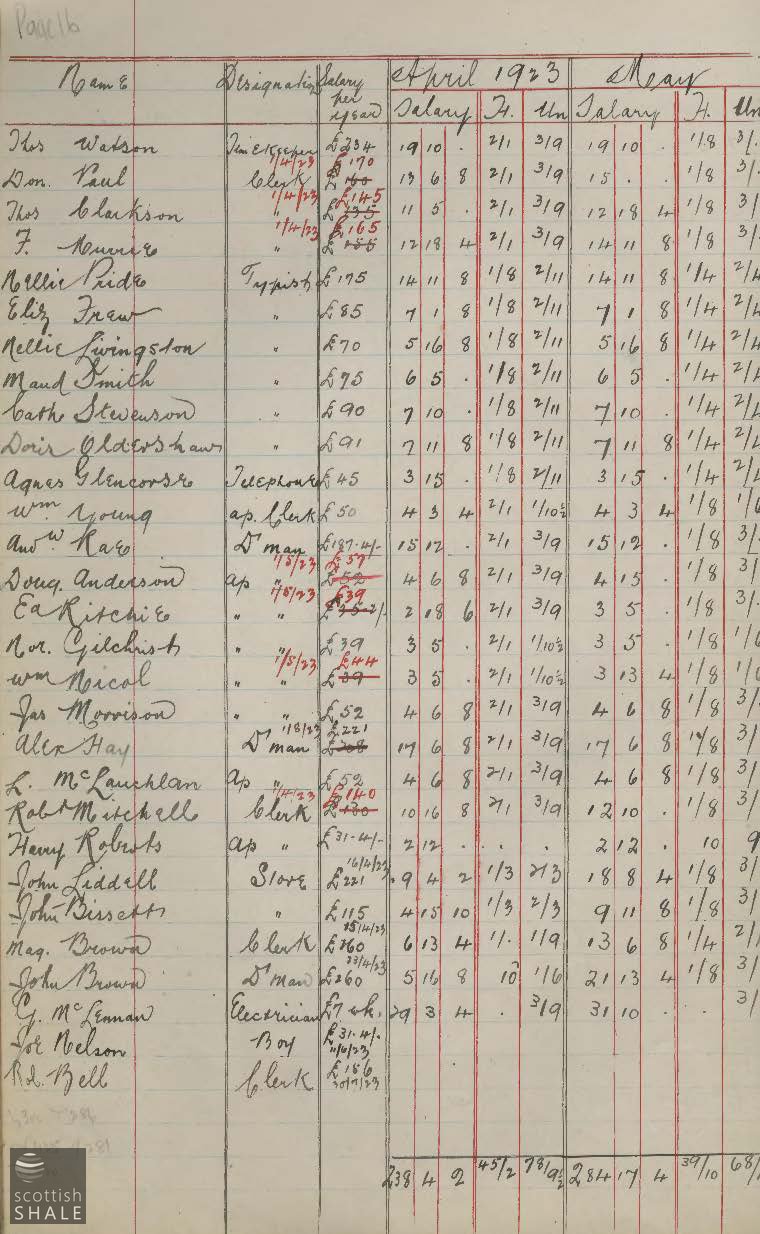 Page 16
Name Designation Salary per year April 1923 May
Salary H. Un Salary H. Un
Thos Watson TimeKeeper £234 19 10 . 2/1 3/9 19 10 . 1/8 3/.
1/4/23 £170
Don. Paul Clerk £160 13 6 8 2/1 3/9 15 . . 1/8 3/.
1/4/23 £145
Thos Clarkson " £135 11 5 . 2/1 3/9 12 18 4 1/8 3/
1/4/23 £165
F. Murrie " £155 12 18 4 2/1 3/9 14 11 8 1/8 3/
Nellie Pride Typist £175 14 11 8 1/8 2/11 14 11 8 1/4 2/4
Eliz Frew " £85 7 1 8 1/8 2/11 7 1 8 1/4 2/4
Nellie Livingston " £70 5 16 8 1/8 2/11 5 16 8 1/4 2/4
Maud Smith " £75 6 5 . 1/8 2/11 6 5 . 1/4 2/4
Cath Stevenson " £90 7 10 . 1/8 2/11 7 10 . 1/4 2/4
Doris Oldershaw " £91 7 11 8 1/8 2/11 7 11 8 1/4 2/4
Agnes Glencorse Telephone £45 3 15 . 1/8 2/11 3 15 . 1/4 2/4
Wm Young ap. Clerk £50 4 3 4 2/1 1/10½ 4 3 4 1/8 1/6
Andw Rae D'man £187.4/- 15 12 . 2/1 3/9 15 12 . 1/8 3/.
1/5/23 £57
Doug. Anderson ap " £52 4 6 8 2/1 3/9 4 15 . 1/8 3/
1/5/23 £39
Ed Ritchie " " £35-2/- 2 18 6 2/1 3/9 3 5 . 1/8 3/.
Nor. Gilchrist " " £39 3 5 . 2/1 1/10½ 3 5 . 1/8 1/6
1/5/23 £44
Wm Nicol " " £39 3 5 . 2/1 1/10½ 3 13 4 1/8 1/6
Jas Morrison " " £52 4 6 8 2/1 3/9 4 6 8 1/8 3/
1/8/23 £221
Alex Hay D'man £208 17 6 8 2/1 3/9 17 6 8 1/8 3/
L. McLauchlan Ap " £52 4 6 8 2/1 3/9 4 6 8 1/8 3/
1/4/23 £140
Robt Mitchell Clerk £130 10 16 8 2/1 3/9 12 10 . 1/8 3/
Harry Roberts ap " £31-4/- 2 12 . . . 2 12 . 10 9
16/4/23
John Liddell Store £221 9 4 2 1/3 2/3 18 8 4 1/8 3/
John Bissett " £115 4 15 10 1/3 2/3 9 11 8 1/8 3/
15/4/23
Mag. Brown Clerk £260 6 13 4 1/. 1/9 13 6 8 1/4 2/
23/4/23
John Brown D'man £260 5 16 8 10 1/6 21 13 4 1/8 3/
G. McLennan Electrician £7 wk. 29 3 4 . 3/9 31 10 . . 3/
Joe Nelson Boy £31-4/-
11/6/23
Rob. Bell Clerk £156
30/7/23
238 4 2 45/2 78/9½ 284 17 4 39/10 68/
scottish
SHALE